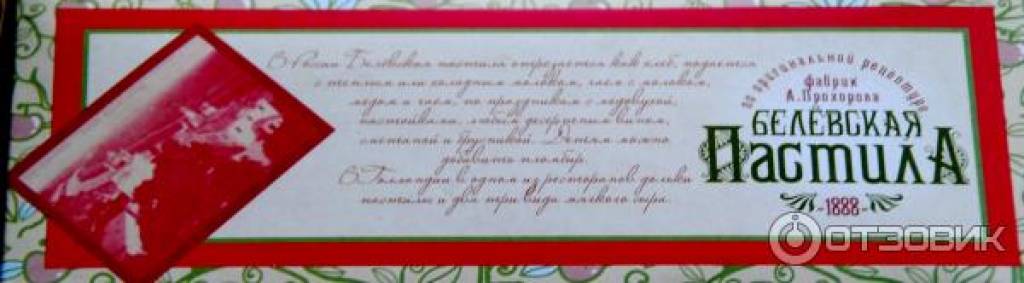 В России Белевская пастила отрезается как хлеб, подается
с теплым или холодным молоком, чаем с молоком,
медом и чаем, по праздникам с медовухой,
настойками, любым десертным вином,
сметаной и брусникой. Детям можно
добавить пломбир.
В Голландии в одном из ресторанов дольки
пастилы и два три вида мягкого сыра.
по оригинальной рецептуре
фабрик
А.Прохорова
БЕЛЁВСКАЯ
ПАСТИЛА
-1888-
ОТЗОВИК